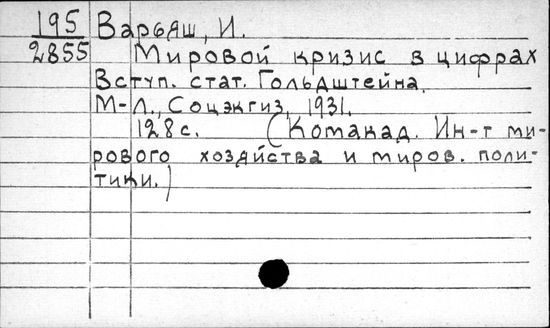 195 Варьяш, И.
2855 Мировой кризис в цифрах
Вступ. стат. Гольдштейна.
М-Л., Соцэкгиз, 1931.
128 с. (Комакад. Ин-т ми-
рового хозяйства и миров. поли-
тики.)